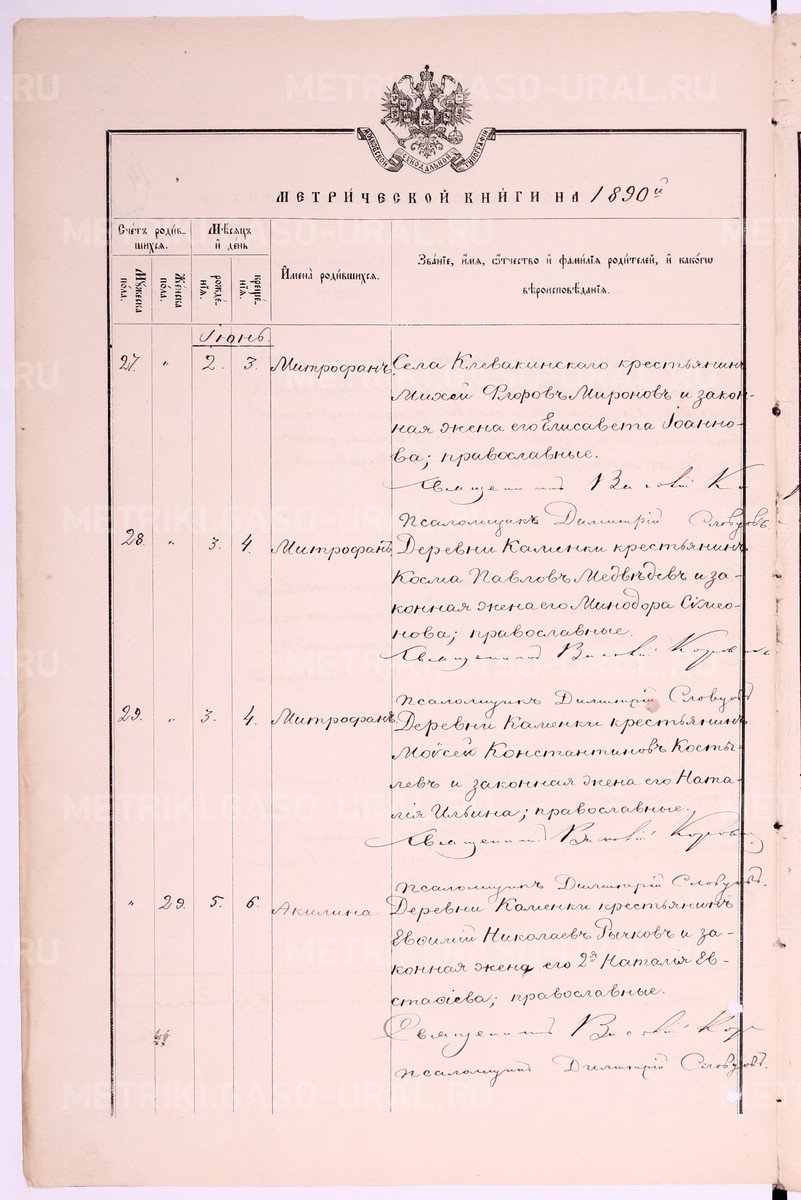 METRIKI.GASO-URAL.RU
МОСКОВСКОЙ СѴНОДАЛЬНОЙ ТИПОГРАФІИ
МЕТРИ́ЧЕСКОЙ КНИ́ГИ НА 1890й
Сче́тъ роди́вшихся.
Мѣ́сяцъ и҆ де́нь
И҆мена̀ роди́вшихся.
Зва́нїе, и҆́мѧ, ѻ҆́тчество и҆ фами́лїѧ роди́телей, и҆ како́гѡ
вѣроисповѣ́данїѧ.
Мꙋ́жеска по́ла.
Же́нска по́ла.
рожде́нїѧ.
креще́нїѧ.
Іюнь.
27. " 2. 3. Митрофанъ. Села Клевакинскаго крестьянинъ
Михей Флоровъ Мироновъ и закон-
ная жена его Елисавета Іоанно-
ва; православные.
Священникъ
Псаломщикъ Димитрій Словцовъ.
28. " 3. 4. Митрофанъ. Деревни Каменки крестьянинъ
Косма Павловъ Медвѣдевъ и за-
конная жена его Минодора Сѵмео-
нова; православные.
Священникъ
Псаломщикъ Димитрій Словцовъ
29. " 3. 4. Митрофанъ. Деревни Каменки крестьянинъ
Моѵсей Константиновъ Косты-
левъ и законная жена его Ната-
лія Ильина; православные.
Священникъ
Псаломщикъ Димитрій Словцовъ.
" 29. 5. 6. Акилина. Деревни Каменки крестьянинъ
Евѳимій Николаевъ Рычковъ и за-
конная жена его 2я Наталія Ев-
стафіева; православные.
Священникъ
Псаломщикъ Димитрій Словцовъ.